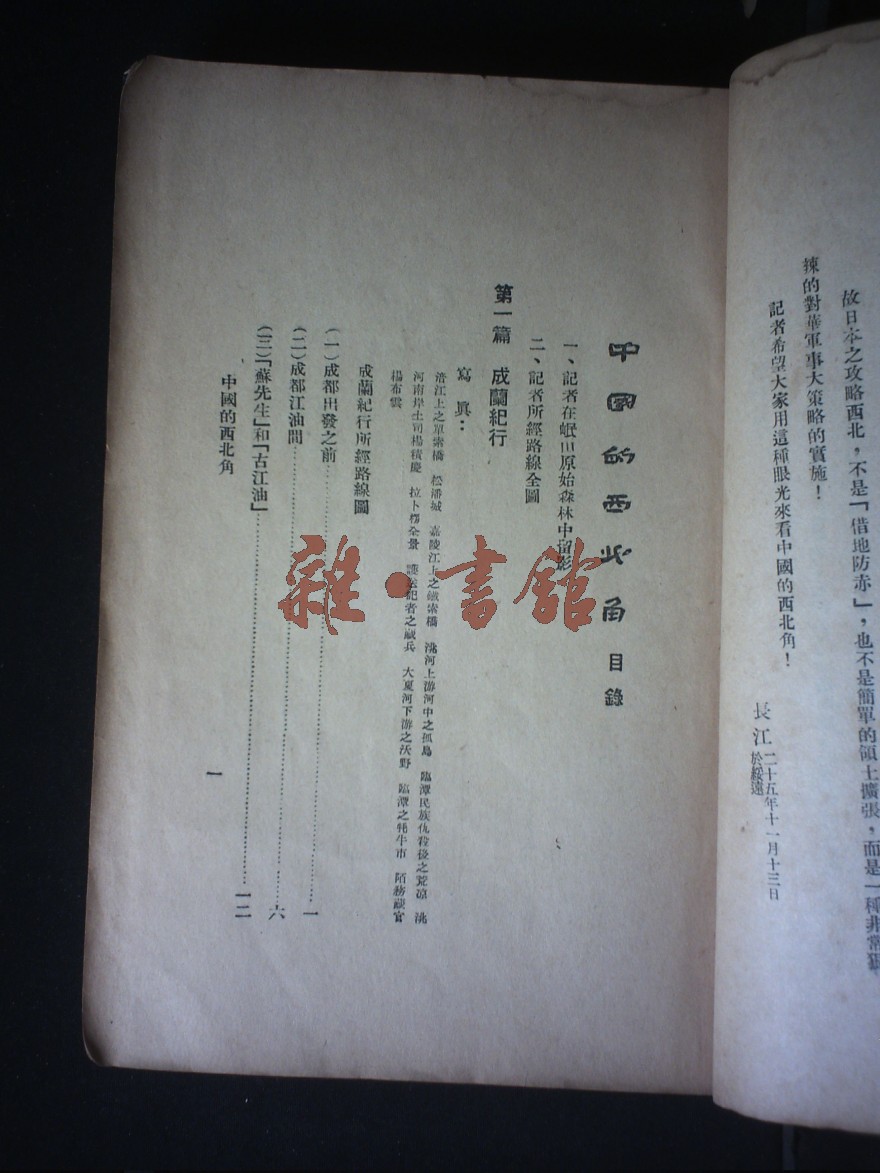 故日本之攻略西北，不是「借地防赤」，也不是簡單的領土擴張，而是一種非常狠
辣的對華軍事大策略的實施！
記者希望大家用這種眼光來看中國的西北角！
長江 二十五年十一月十三日
於綏遠
中國的西北角 目錄
一、記者在岷山原始森林中留影
二、記者所經路線全圖
第一篇 成蘭紀行
寫眞：
涪江上之單索橋 松潘城 嘉陵江上之鐵索橋 洮河上游河中之孤島 臨潭民族仇殺後之荒凉 洮
河南岸土司楊積慶 拉卜楞全景 護送記者之藏兵 大夏河下游之沃野 臨潭之牦牛市 陌務談官
楊布雲
成蘭紀行所經路線圖
(一)成都出發之前……一
(二)成都江油間……六
(三)「蘇先生」和「古江油」……一二
中國的西北角
一
雜·書館